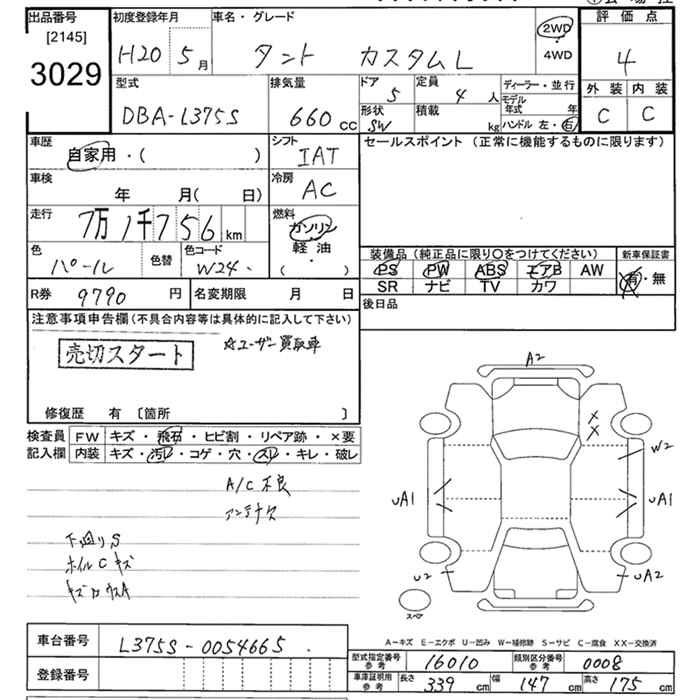 出品番号 初度登録年月 車名・グレード 2WD 4WD 評価点
[2145]
3029 H20 5月 タント カスタムL 4
型式 排気量 ドア 定員 ディーラー・並行 外装 内装
DBA-L375S 660cc 5 4人 モデル年式 年 C C
形状 積載 ハンドル 左・右
SW kg
車歴 自家用・( ) シフト IAT セールスポイント (正常に機能するものに限ります)
車検 年 月( 日) 冷房 AC
走行 7万1千756km 燃料 ガソリン 軽油 ・( )
色 パール 色替 色コード W24 装備品 (純正品に限り○をつけてください) 新車保証書
PS PW ABS エアB AW 有・無
SR ナビ TV カワ
R券 9790円 名変期限 月 日 後日品
注意事項申告欄(不具合内容等は具体的に記入して下さい)
売切スタート ☆ユーザー買取車
修復歴 有 [箇所 ]
検査員 FW キズ・飛石・ヒビ割・リペア跡・×要
記入欄 内装 キズ・汚レ・コゲ・穴・スレ・キレ・破レ
A/C不良
アンテナ欠
下回りS
ホイルCキズ
A2
W2
uA1 uA1
u2 uA2
スペア
A-キズ E-エクボ U-凹み W-補修跡 S-サビ C-腐食 XX-交換済
車台番号 L375S-0054665
登録番号
型式指定番号 参考 16010 類別区分番号 参考 0008
車庫証明用 参考 長さ 339cm 幅 147cm 高さ 175cm